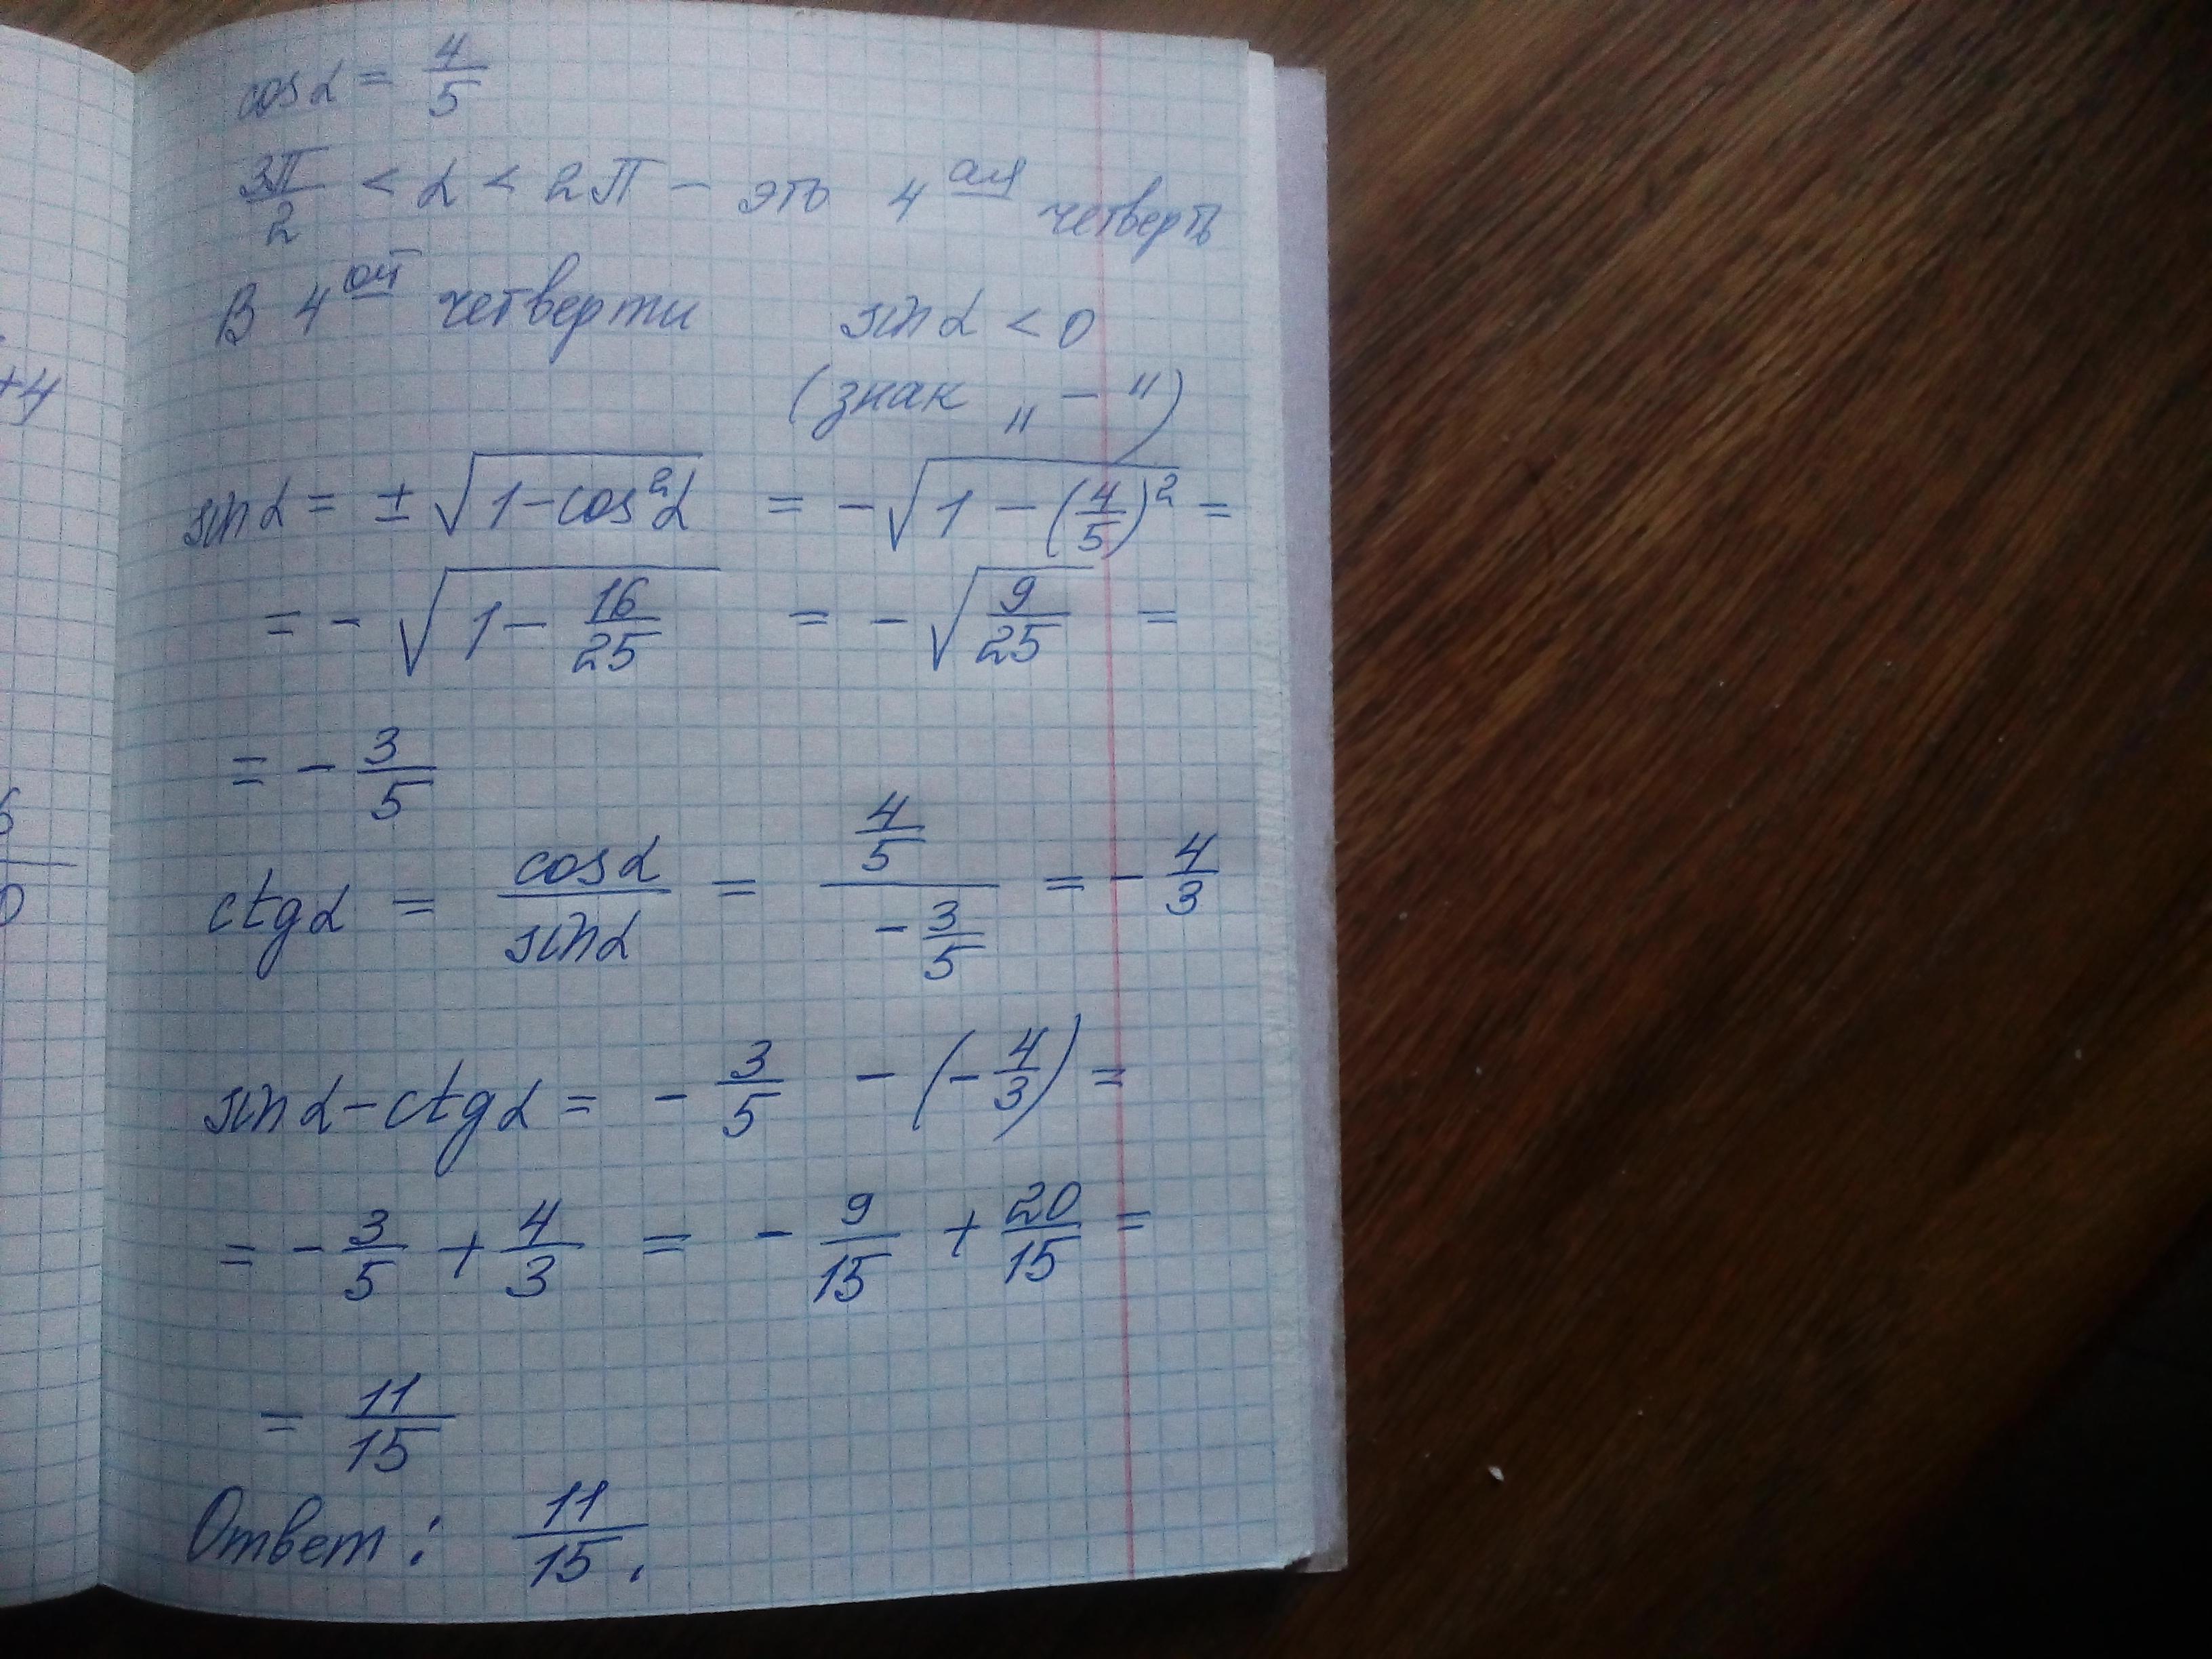 cos α = 4/5
3π/2 < α < 2π – это 4ая четверть
В 4ой четверти sin α < 0
(знак „ – “)
sin α = ± √(1 – cos²α) = – √(1 – (4/5)²) =
= – √(1 – 16/25) = – √(9/25) =
= – 3/5
ctg α = cos α / sin α = (4/5) / (– 3/5) = – 4/3
sin α – ctg α = – 3/5 – (– 4/3) =
= – 3/5 + 4/3 = – 9/15 + 20/15 =
= 11/15
Ответ: 11/15.